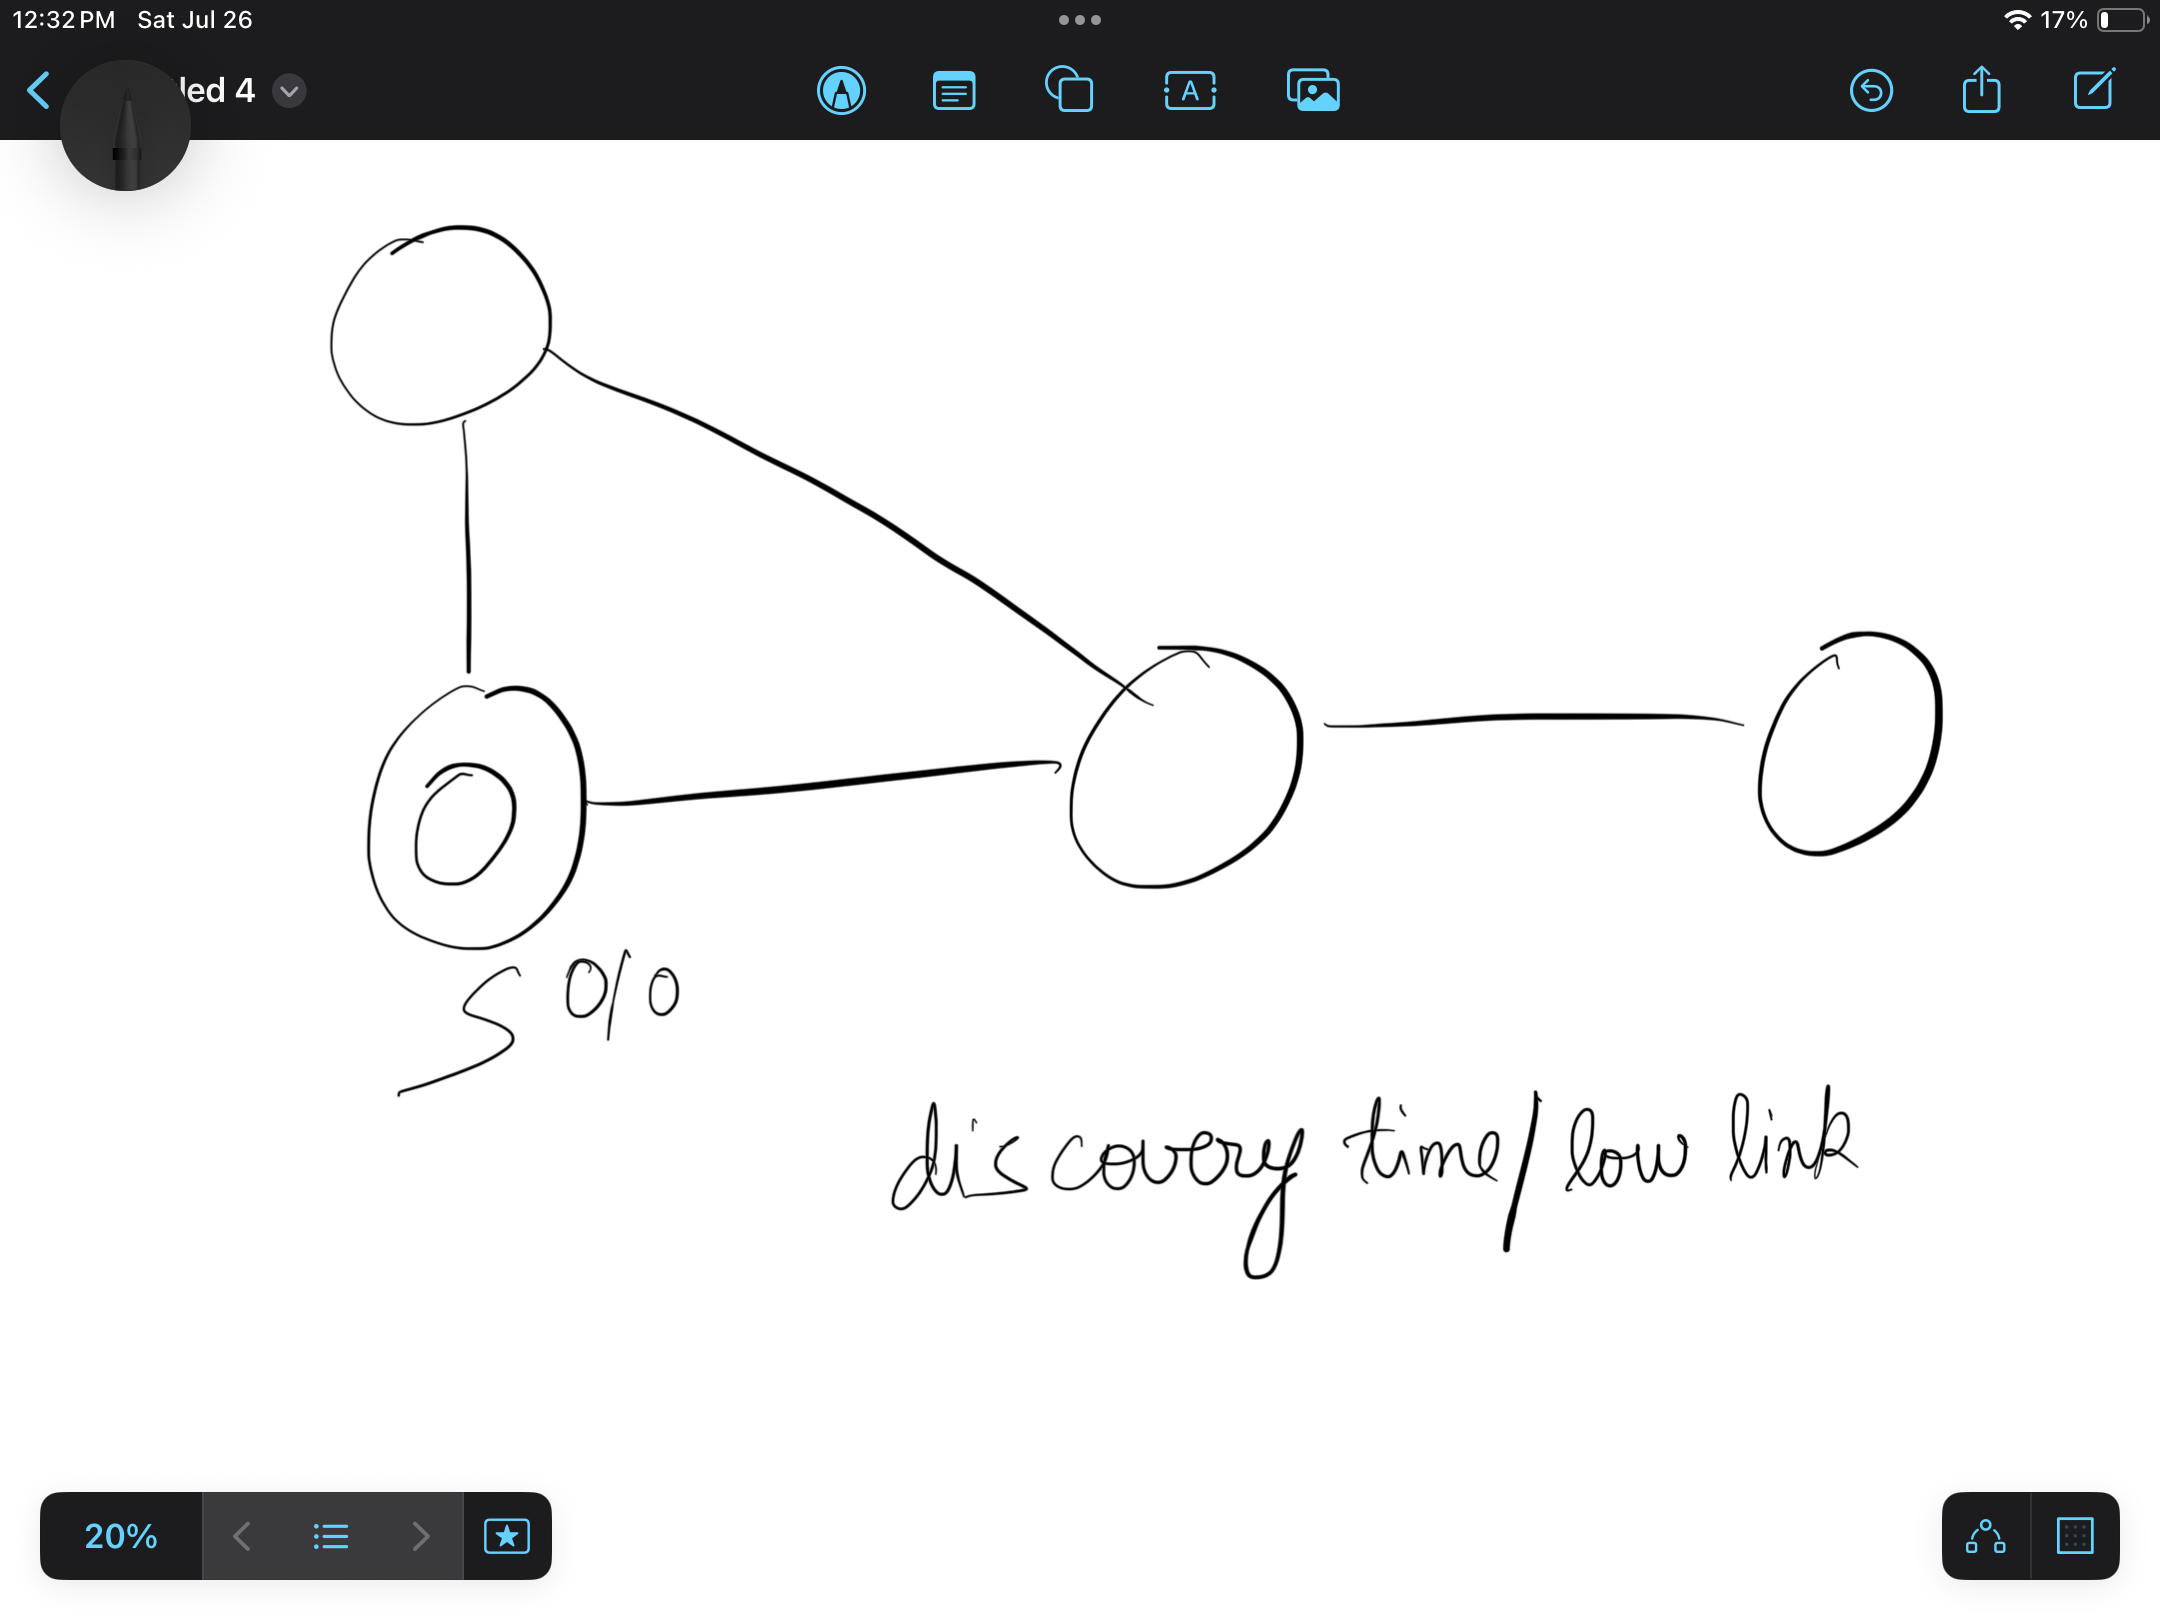 12:32 PM Sat Jul 26
17%
led 4
A
S 0/0
discovery time/low link
20%